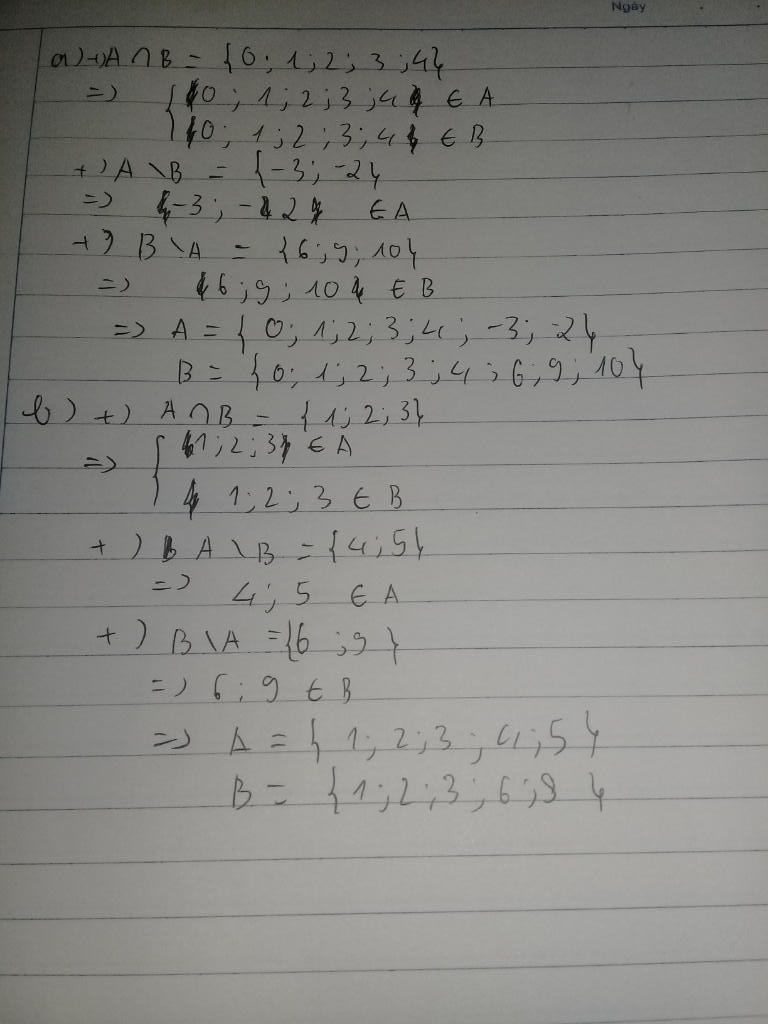 Ngày
a) +) A ∩ B = {0; 1; 2; 3; 4}
=> { 0; 1; 2; 3; 4 ∈ A
0; 1; 2; 3; 4 ∈ B
+) A \ B = {-3; -2}
=> -3; -2 ∈ A
+) B \ A = {6; 9; 10}
=> 6; 9; 10 ∈ B
=> A = {0; 1; 2; 3; 4; -3; -2}
B = {0; 1; 2; 3; 4; 6; 9; 10}
b) +) A ∩ B = {1; 2; 3}
=> { 1; 2; 3 ∈ A
1; 2; 3 ∈ B
+) A \ B = {4; 5}
=> 4; 5 ∈ A
+) B \ A = {6; 9}
=> 6; 9 ∈ B
=> A = {1; 2; 3; 4; 5}
B = {1; 2; 3; 6; 9}